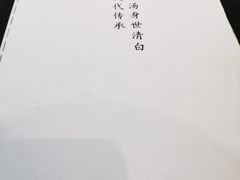 汤身世清白
代传承